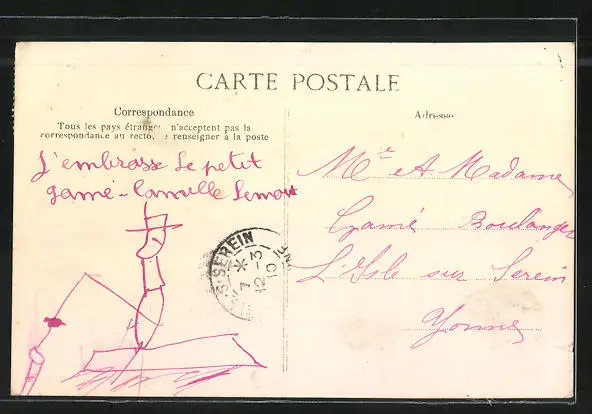 CARTE POSTALE
Correspondance
Tous les pays étrangers n'acceptent pas la
correspondance au recto, se renseigner à la poste
J'embrasse le petit
gamé - Camille Lemont
Adresse
Mr et Madame
Gamé Boulanger
L'Isle sur Serein
Yonne
S/SEREIN
7 *
12 - 3
10